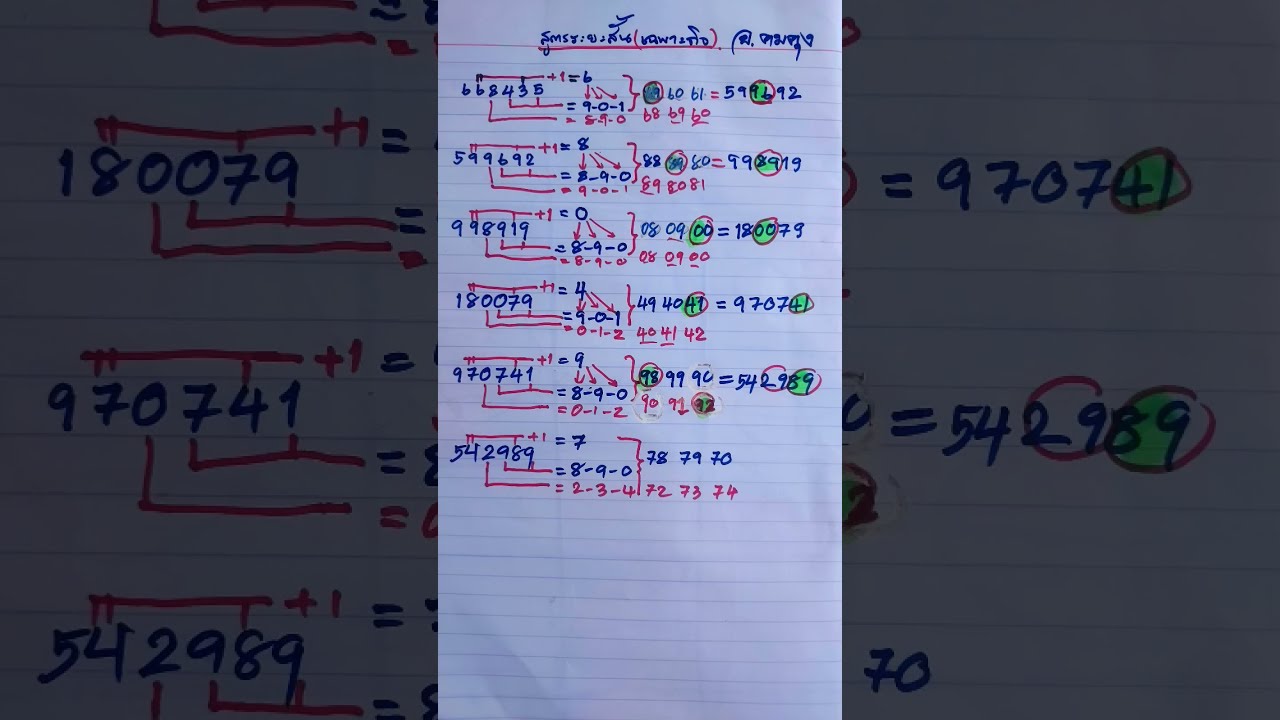 สูตรระยะสั้น(เฉพาะกิจ)
+1 = 6
668435 69 60 61 = 599692
= 9-0-1 68 69 60
= 8-9-0
+1 = 8
599692 88 89 80 = 998919
= 8-9-0
= 9-0-1 89 80 81
+1 = 0
998919 08 09 00 = 180079
= 8-9-0
= 8-9-0 08 09 00
+1 = 4
180079 49 40 41 = 970741
= 9-0-1
= 0-1-2 40 41 42
+1 = 9
970741 98 99 90 = 542989
= 8-9-0
= 0-1-2 90 91 92
+1 = 7
542989 78 79 70
= 8-9-0
= 2-3-4 72 73 74